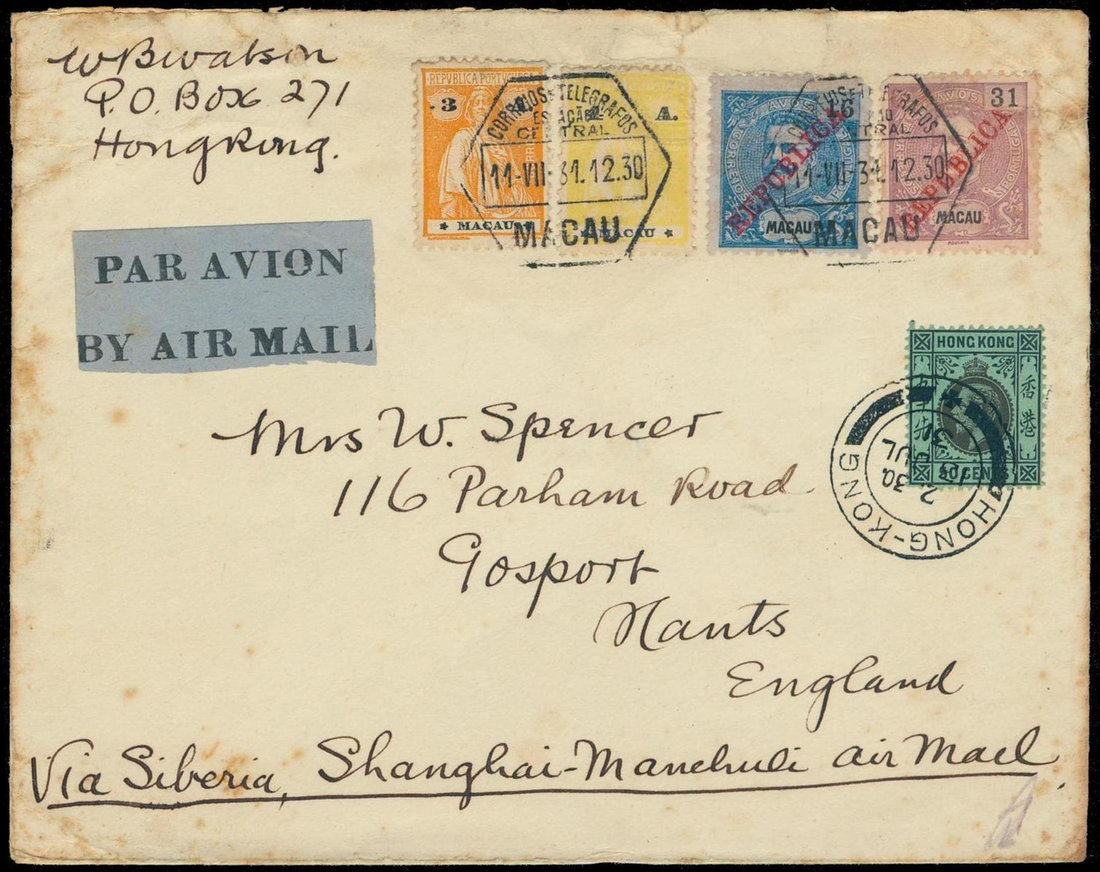 W B Watson
P.O. Box 271
Hongkong.
REPUBLICA PORTUGUESA
3
MACAU
A.
MACAU
CORREIOS E TELEGRAFOS
ESTAÇÃO
CENTRAL
11-VII-31.12.30
MACAU
AVOS
16
REPUBLICA
MACAU
AVOS
31
REPUBLICA
MACAU
CORREIOS E TELEGRAFOS
CENTRAL
11-VII-31.12.30
MACAU
PAR AVION
BY AIR MAIL
HONG KONG
香港
50 CENTS
HONG-KONG
2.30
JUL
Mrs W. Spencer
116 Parham Road
Gosport
Hants
England
Via Siberia, Shanghai-Manchuli air Mail.